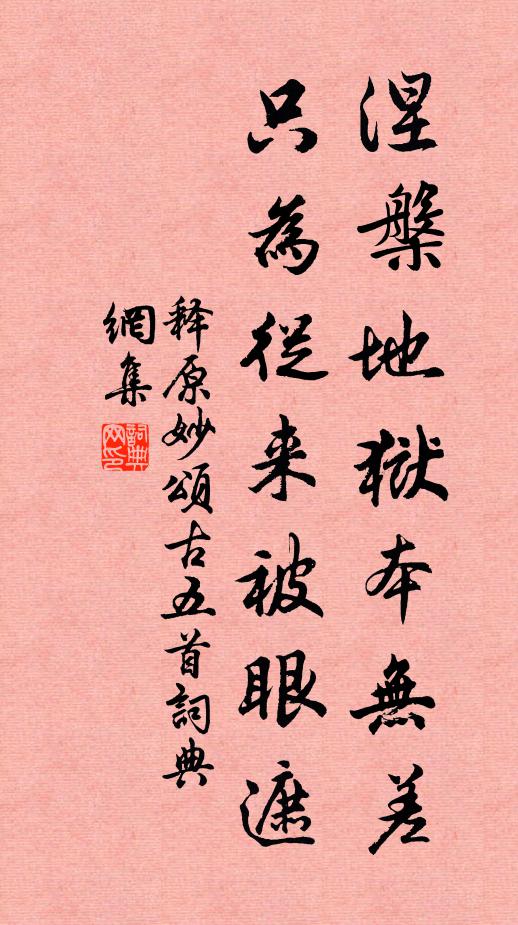 涅槃地獄本無差
只為從来被眼遮
释原妙頌古五首詞典
網集
詞典网印